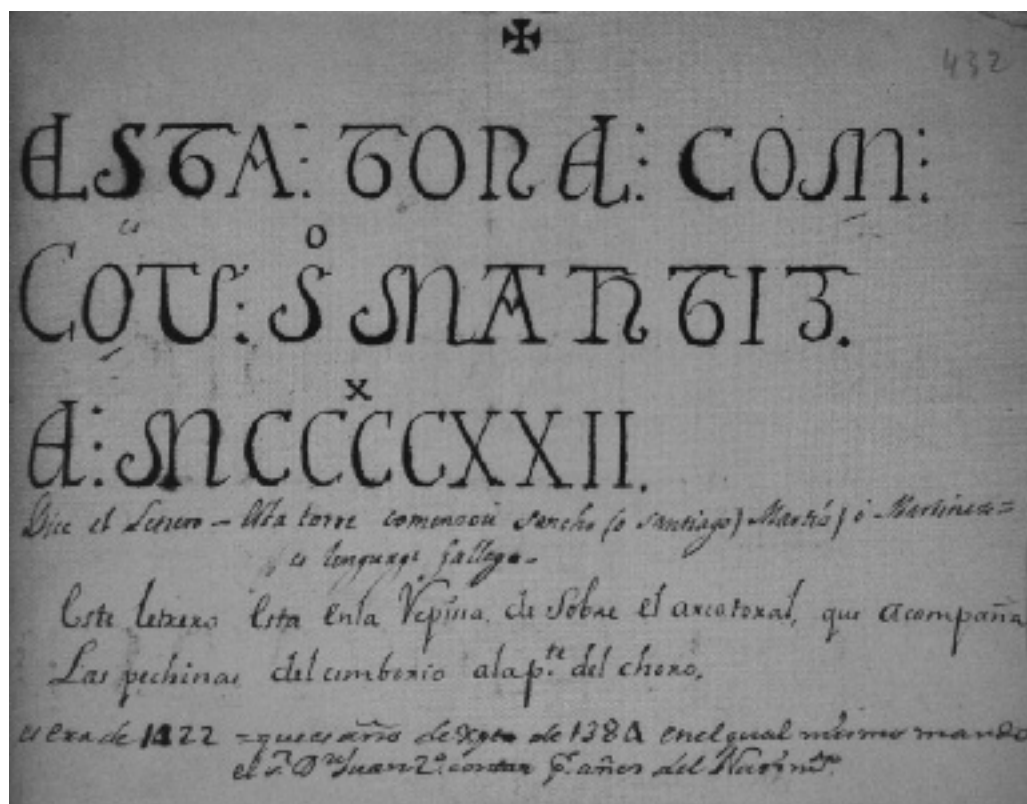 432
ESTA: TORE: COM:
COV: So MARTIZ.
E: MCCCCXXII.
Dice el Letrero – Esta torre comenzou Sancho (o Santiago) Martis) ó Martinez =
es lenguage gallego –
Este letrero Esta enla de Sobre el arcotoral, que acompaña
Las pechinas del cimborio ala pte. del choro.
es era de 1422 = que es año de Xpto de 1384 enel qual mismo mando
el Juan contar años del